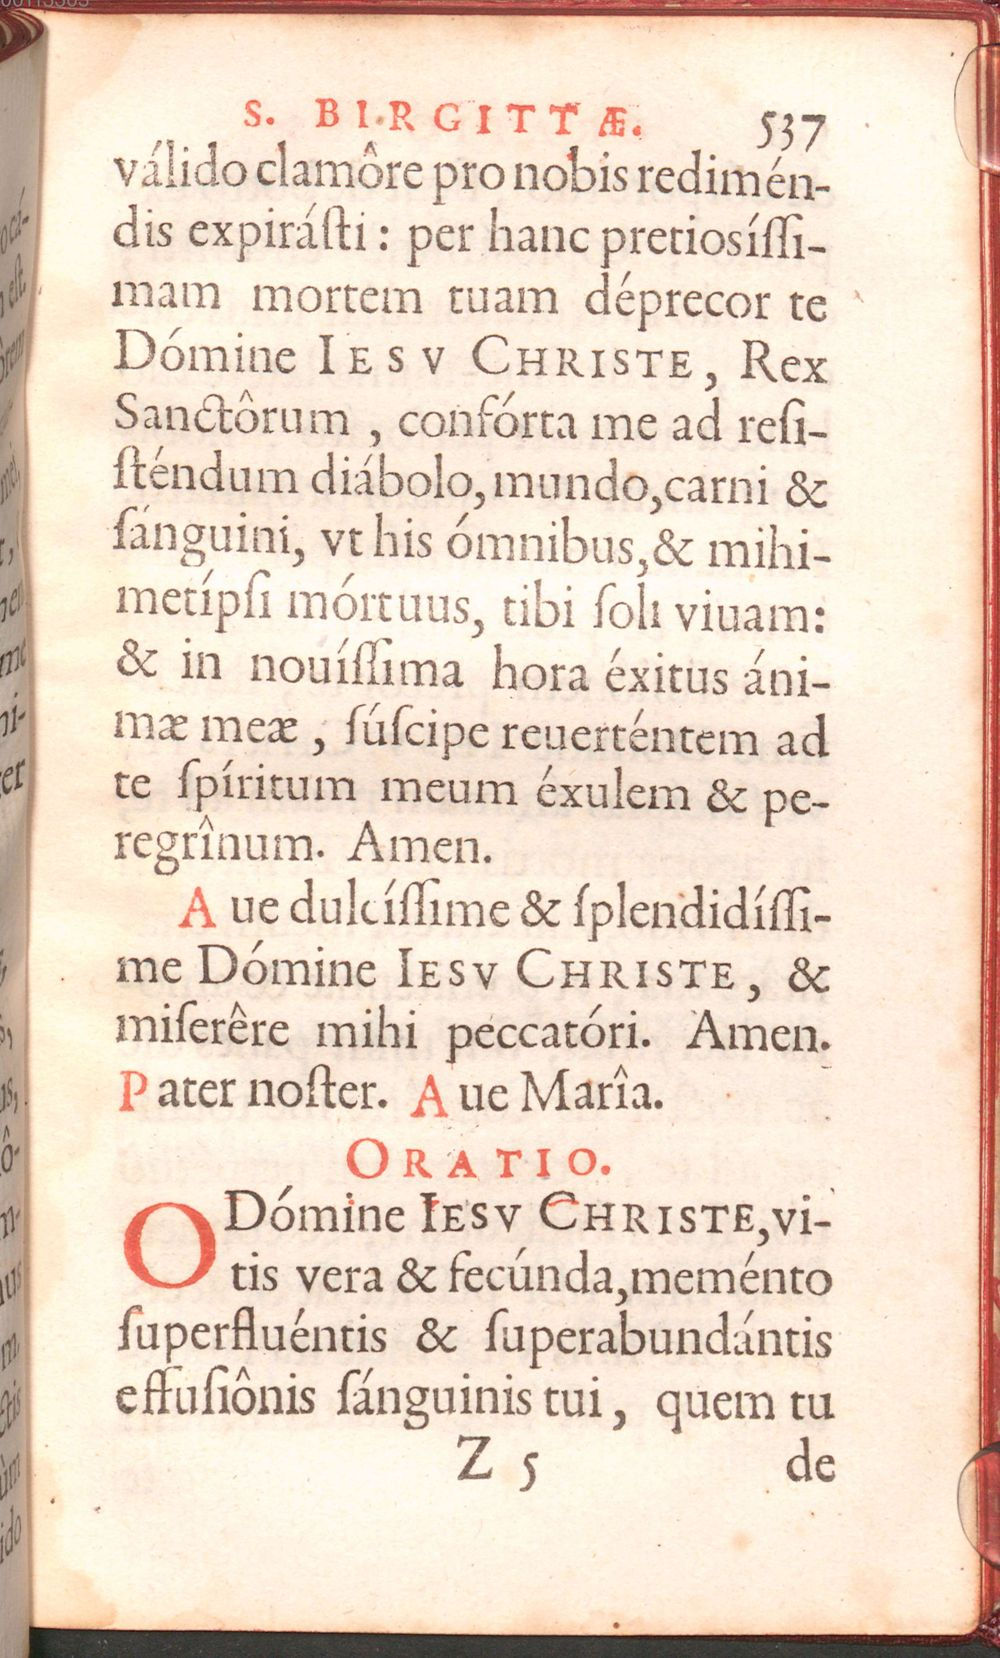 S. BIRGITTÆ. 537
válido clamôre pro nobis redimén-
dis expiráſti : per hanc pretiosíſſi-
mam mortem tuam déprecor te
Dómine IESV CHRISTE, Rex
Sanctôrum , confórta me ad reſi-
ſténdum diábolo, mundo, carni &
ſánguini, vt his ómnibus, & mihi-
metípſi mórtuus, tibi ſoli viuam:
& in nouíſſima hora éxitus áni-
mæ meæ , ſúſcipe reuerténtem ad
te ſpíritum meum éxulem & pe-
regrînum. Amen.
Aue dulcíſſime & ſplendidíſſi-
me Dómine IESV CHRISTE, &
miſerêre mihi peccatóri. Amen.
Pater noſter. Aue Marîa.
ORATIO.
O Dómine IESV CHRISTE, vi-
tis vera & fecúnda, meménto
ſuperfluéntis & ſuperabundántis
effuſiônis ſánguinis tui, quem tu
Z 5 de